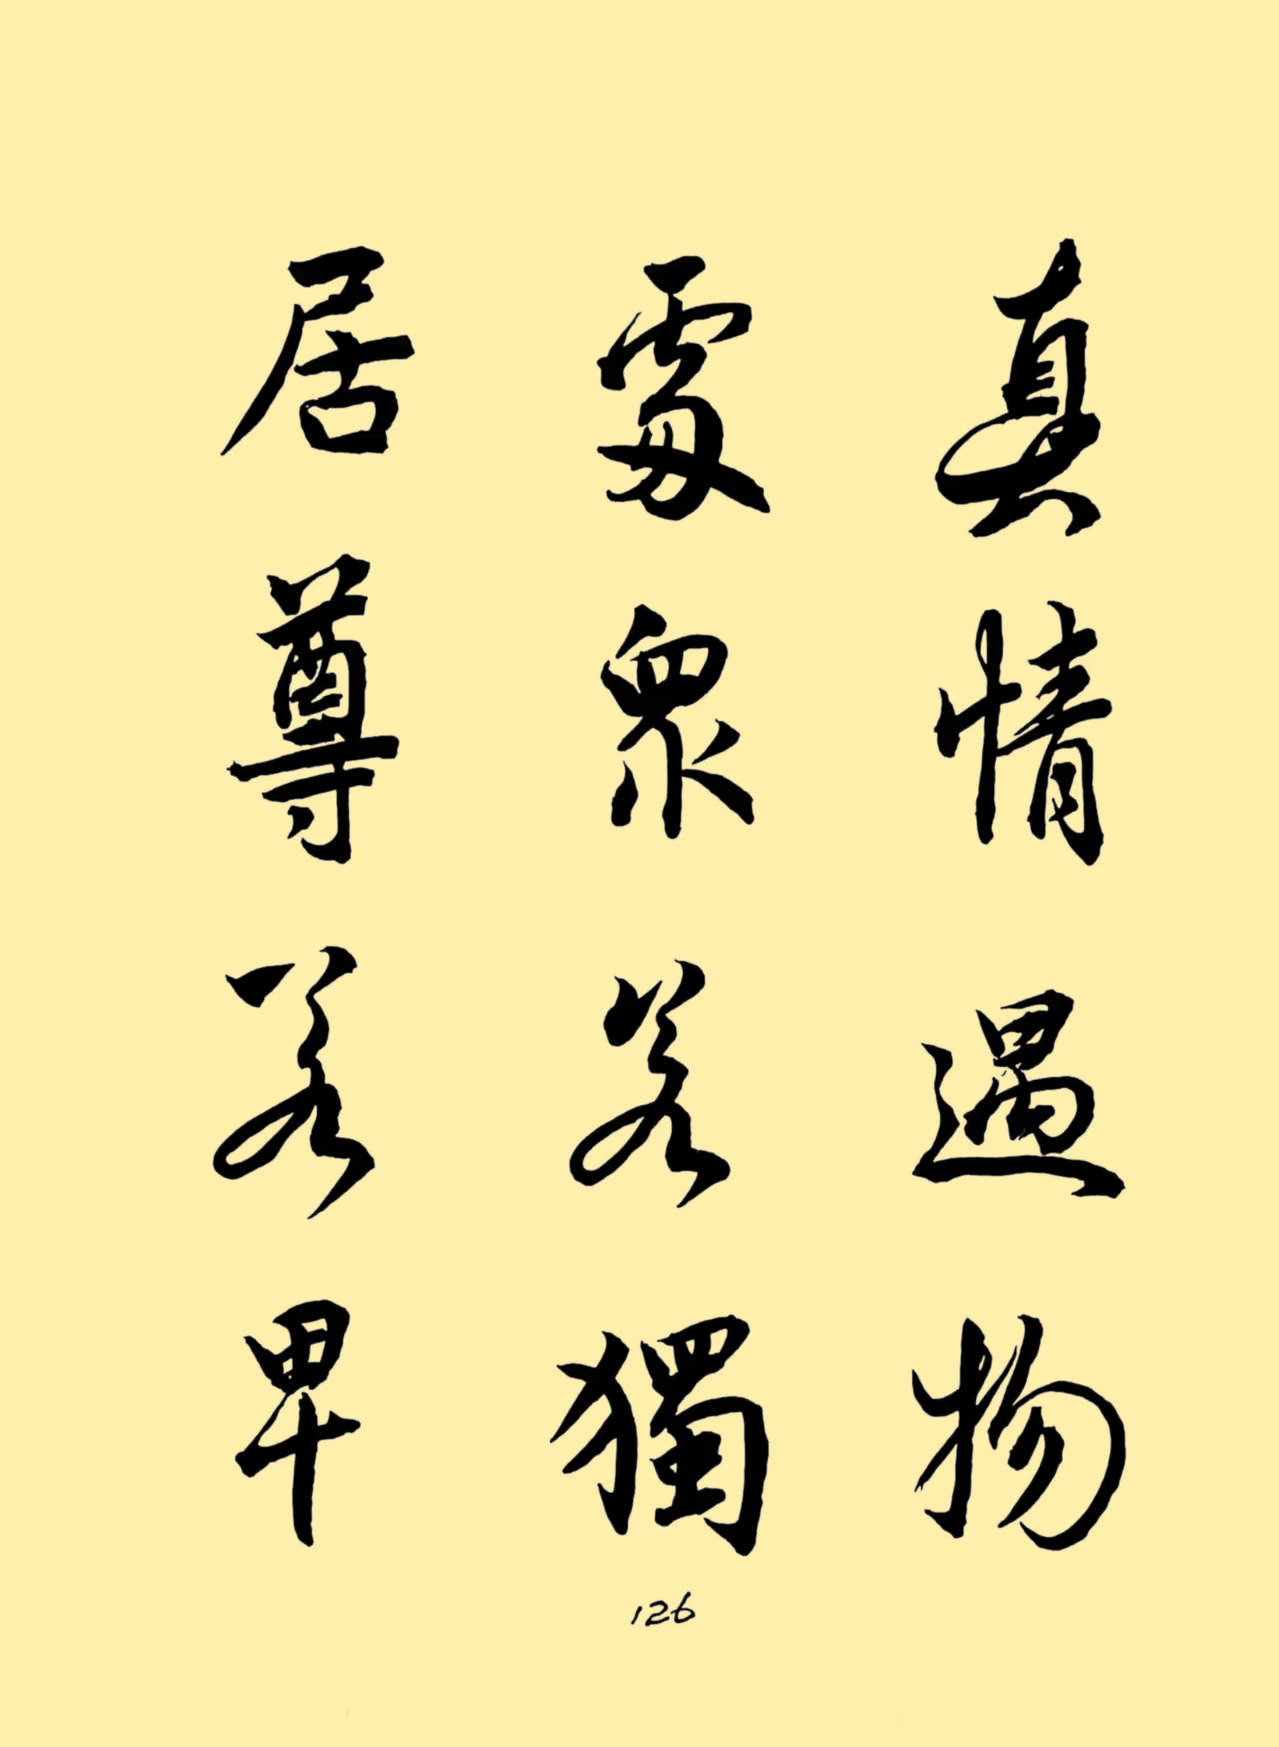 真情遇物
處眾若獨
居尊若卑
126